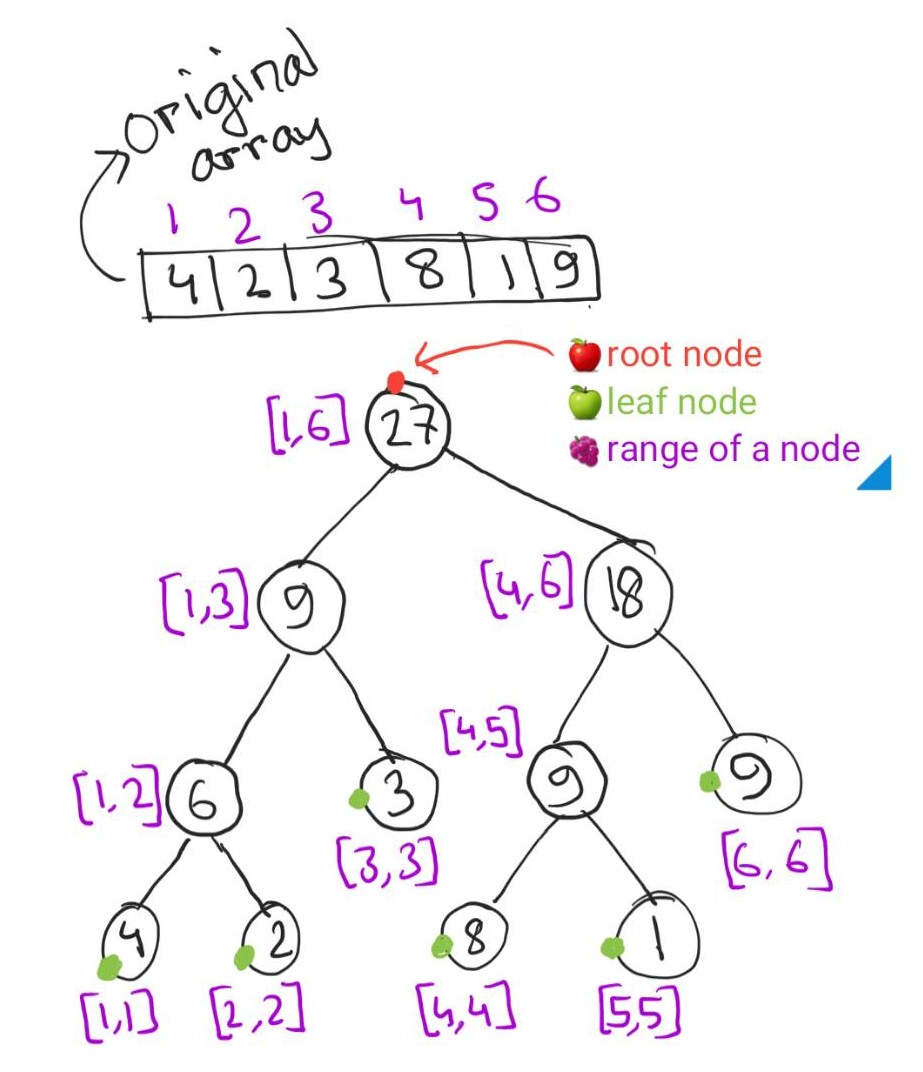 Original
array
1 2 3 4 5 6
4 2 3 8 1 9
root node
leaf node
range of a node
[1,6] 27
[1,3] 9 [4,6] 18
[1,2] 6 3 [4,5] 9 9
[3,3] [6,6]
4 2 8 1
[1,1] [2,2] [4,4] [5,5]